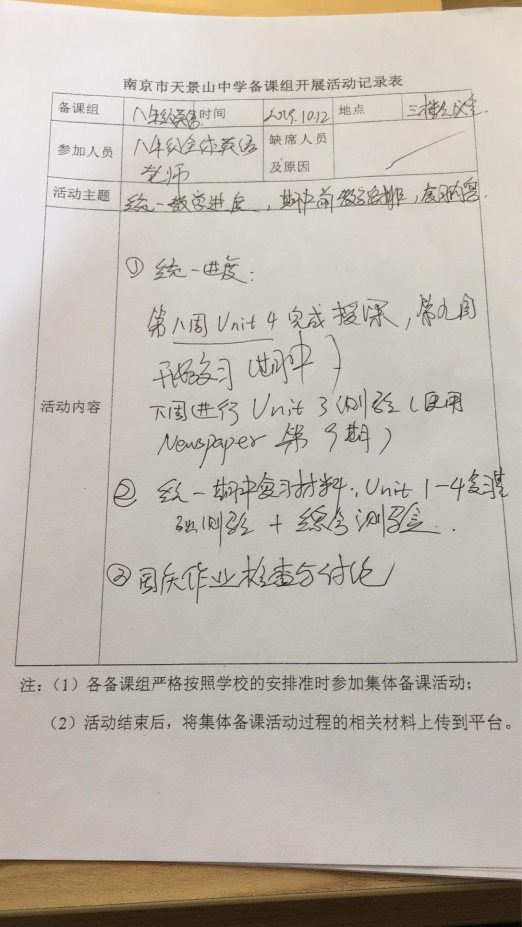 南京市天景山中学备课组开展活动记录表
备课组 八年级英语 时间 2019.10.12 地点 三楼会议室.
参加人员 八年级全体英语老师 缺席人员及原因
活动主题 统一教学进度，期中前教学安排，
活动内容
① 统一进度：
第八周 Unit 4 完成授课，第九周
开始复习（期中）
下周进行 Unit 3 测验（使用
Newspaper 第 9 期）
② 统一期中复习材料：Unit 1-4 复习基
础测验 + 综合测验.
③ 国庆作业检查与讨论
注：（1）各备课组严格按照学校的安排准时参加集体备课活动；
（2）活动结束后，将集体备课活动过程的相关材料上传到平台。